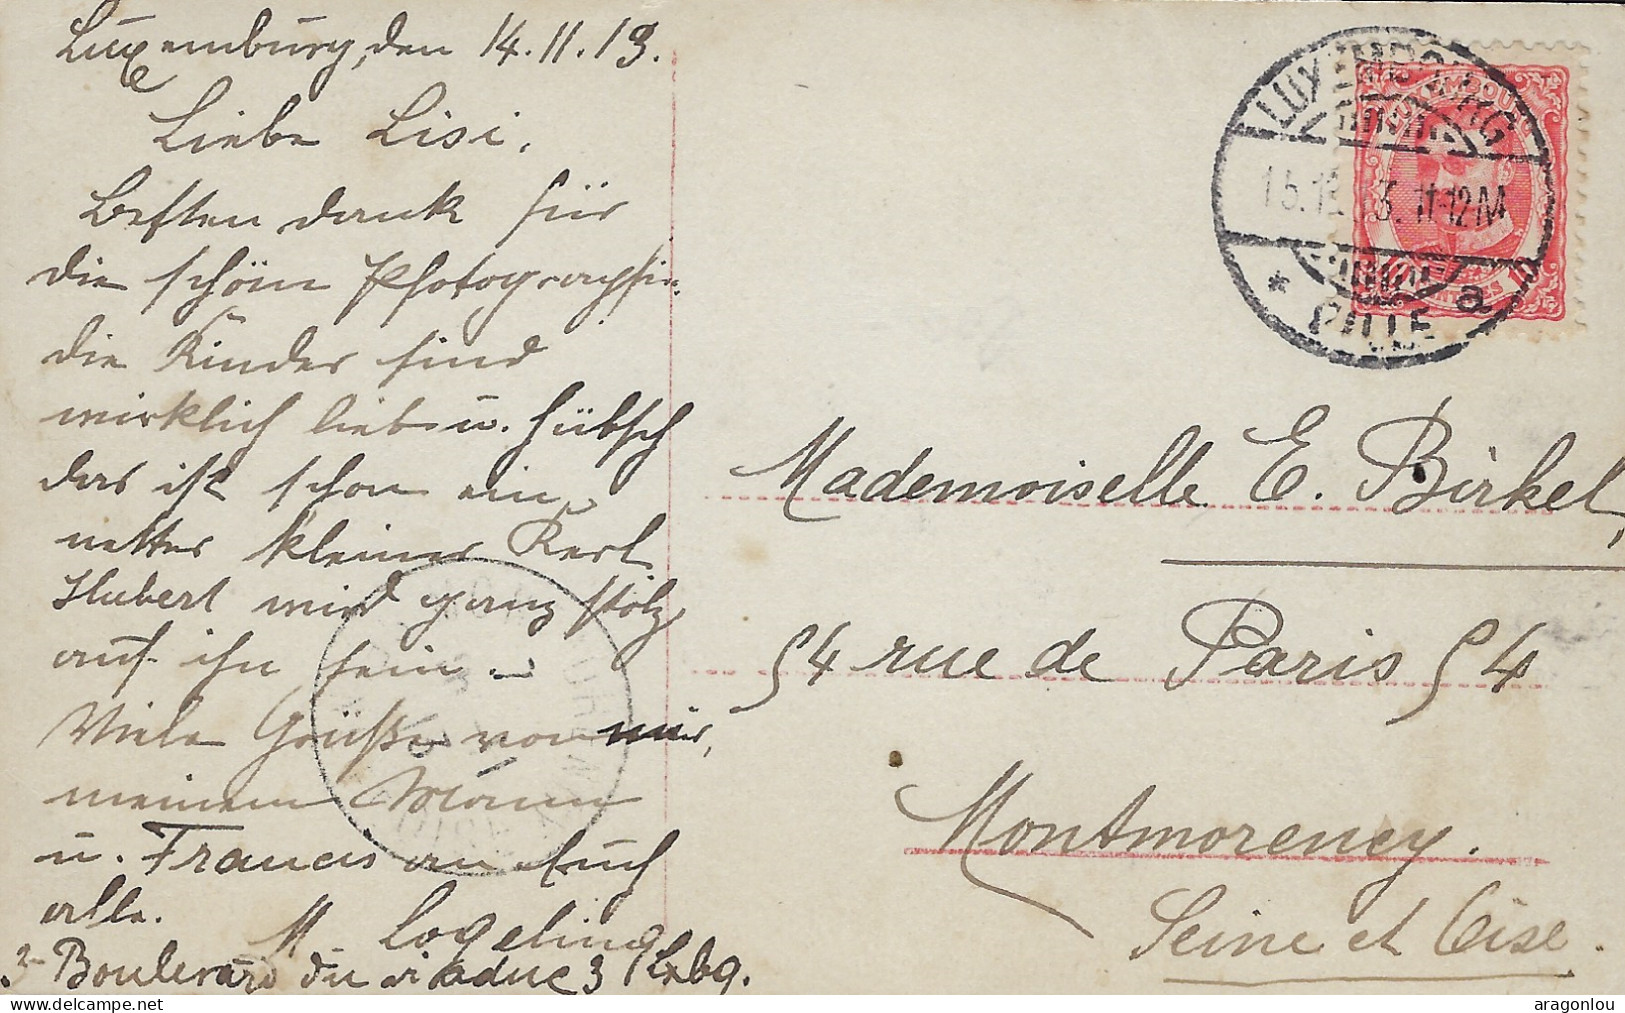 Luxemburg, den 14.11.13.
Liebe Lisi,
Besten Dank für
die schöne Photographie.
die Kinder sind
wirklich lieb u. hübsch
das ist schon ein
netter kleiner Kerl
Hubert wird ganz stolz
auf ihn sein –
Viele Grüße von mir,
meinem Mann
u. Francis an Euch
alle.
M Logeling
3 Boulevard du viaduc 3 Lxbg.
LUXEMBOURG
VILLE
a
11-12M
Mademoiselle E. Birkel,
54 rue de Paris 54
Montmorency.
Seine et Oise.
www.delcampe.net
aragonlou